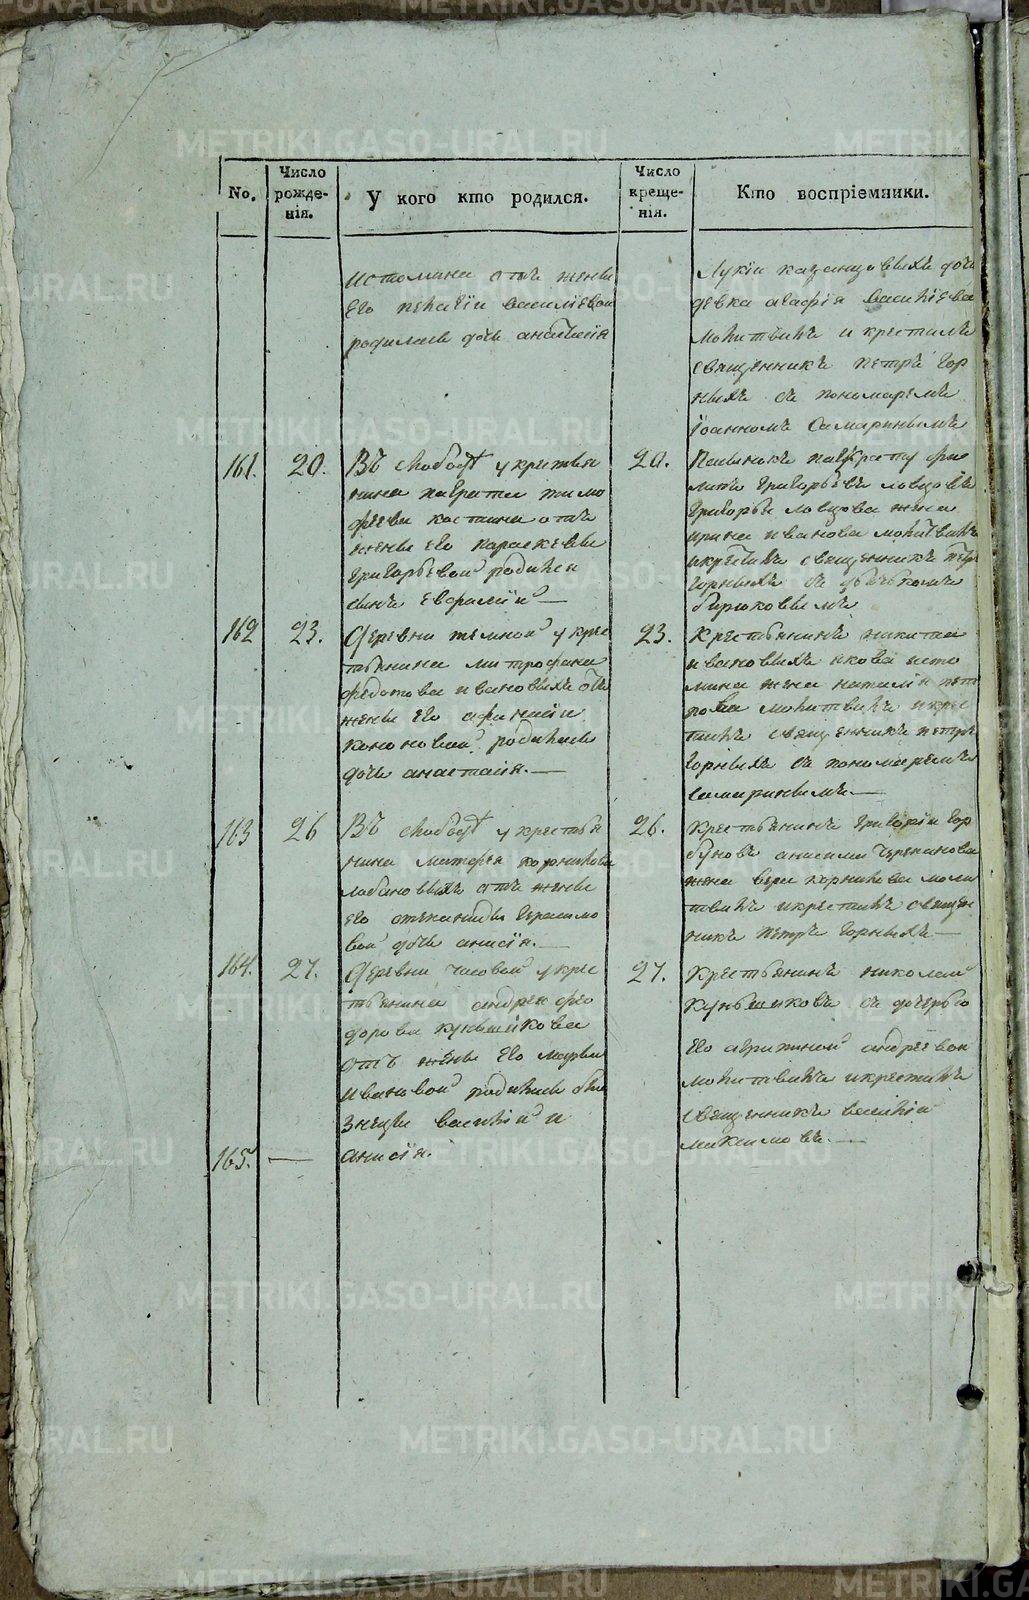 No.
Число рожде-нія.
У кого кто родился.
Число креще-нія.
Кто воспріемники.
Истомина отъ жены
его пелагіи василіевой
родилась дочь анастасія
Лукіи казанцовыхъ дочь
девка агафія василіева
молитвилъ и крестилъ
священникъ петръ гор
ныхъ съ пономаремъ
іоанномъ самаринымъ
161.
20.
Въ слободѣ у крестья
нина панкрати тимо
феева костина отъ
жены его параскевы
григорьевой родился
сынъ евфимій
20.
григорьевъ ловцовъ
григорья ловцова жена
ирина иванова молитвилъ
икрестилъ священникъ петръ
горныхъ съ дьячкомъ
бирюковымъ
162
23.
Деревни темной у крес
тьянина митрофана
федотова ивановыхъ отъ
жены его афанасіи
кононовой родилась
дочь анастасія.
23.
Крестьянинъ никита
ивановыхъ якова исто
мина жена наталія пет
рова молитвилъ икрес
тилъ священникъ петръ
горныхъ съ пономаремъ
самаринымъ
163
26
Въ слободѣ у крестья
нина матфея корнилова
лобановыхъ отъ жены
его степаниды герасимо
вой дочь анисія.
26.
Крестьянинъ григорій гор
буновъ анисима черепанова
жена вера корнилова моли
твилъ икрестилъ священ
никъ петръ горныхъ
164.
27.
Деревни часовой укрес
тьянина андрея фео
дорова куньшикова
отъ жены его марѳы
ивановой родились бли
знецы василій и
27.
Крестьянинъ николай
куньшиковъ съ дочерью
его агрипиной андреевой
молитвилъ икрестилъ
священникъ василій
максимовъ.
165.
анисія.
METRIKI.GASO-URAL.RU